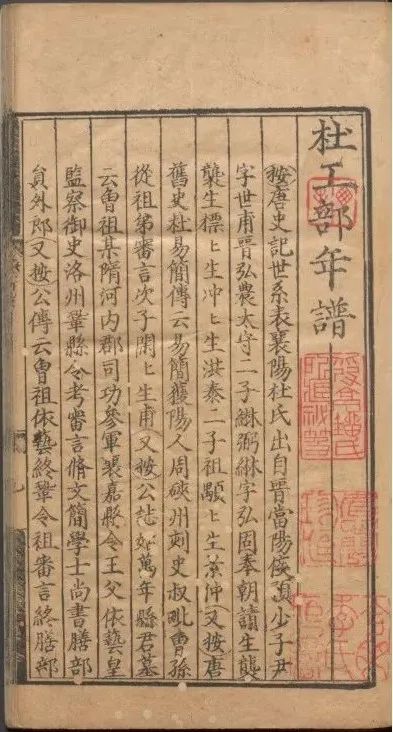 杜工部年譜
按唐史記世系表襄陽杜氏出自晉當陽侯預少子尹
字世甫晉弘農太守二子綝弼綝字弘固奉朝請生襲
襲生標匕生冲匕生洪泰二子祖顒匕生景沖又按唐
舊史杜易簡傳云易簡襄陽人周硤州刺史叔毗曾孫
從祖弟審言次子閑匕生甫又按公誌姑萬年縣君墓
云曾祖某隋河內郡司功參軍獲嘉縣令王父依藝皇
監察御史洛州鞏縣令考審言脩文簡學士尚書膳部
員外郎又按公傳云曾祖依藝終鞏令祖審言終膳部